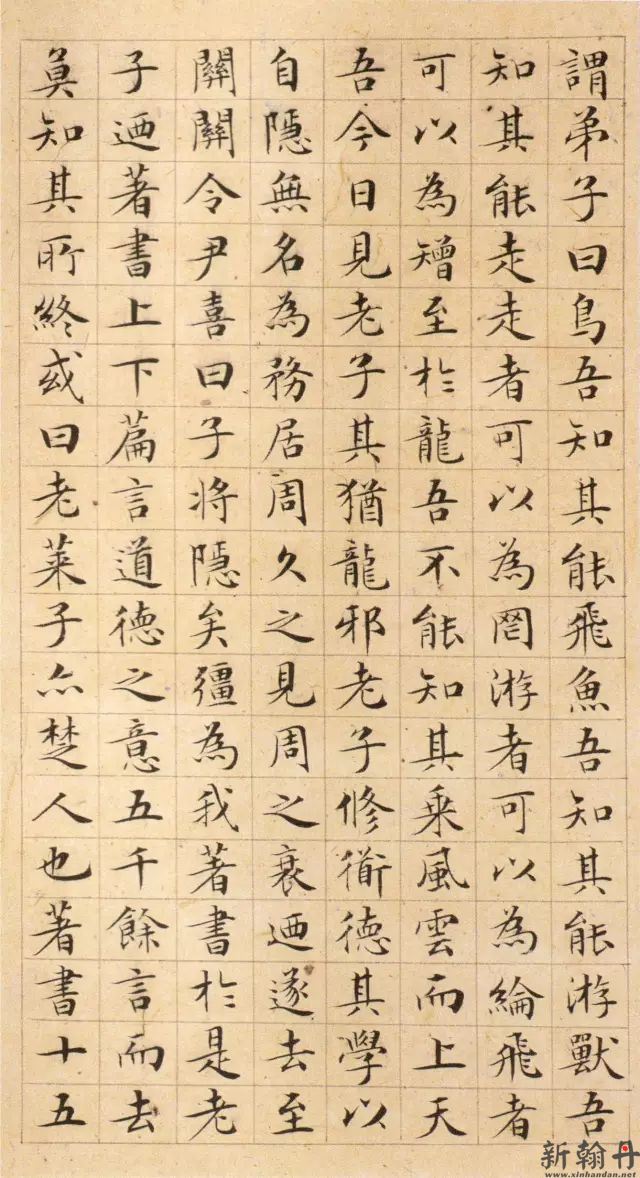 謂弟子曰鳥吾知其能飛魚吾知其能游獸吾
知其能走走者可以為罔游者可以為綸飛者
可以為矰至於龍吾不能知其乘風雲而上天
吾今日見老子其猶龍邪老子修衜德其學以
自隱無名為務居周久之見周之衰迺遂去至
關關令尹喜曰子將隱矣彊為我著書於是老
子迺著書上下篇言道德之意五千餘言而去
莫知其所終或曰老萊子亦楚人也著書十五
新翰丹
www.xinhandan.net